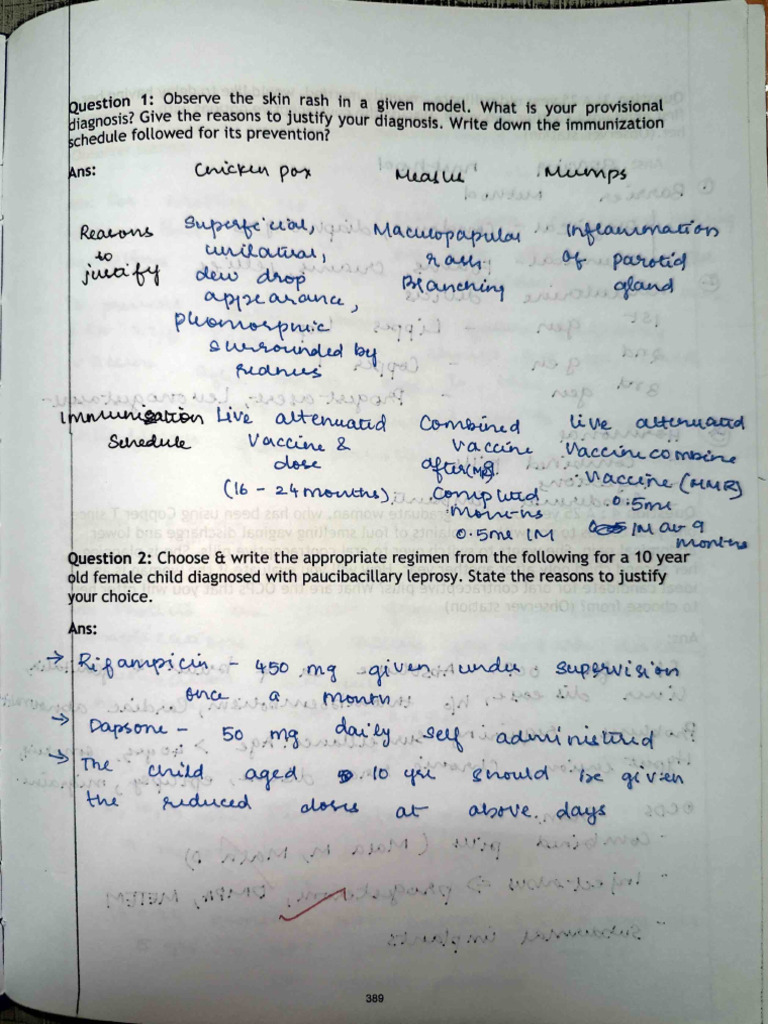 Question 1: Observe the skin rash in a given model. What is your provisional
diagnosis? Give the reasons to justify your diagnosis. Write down the immunization
schedule followed for its prevention?
Ans: Chicken pox Measle Mumps
Reasons to justify
Superficial,
unilatural,
dew drop
appearance,
pleomorphic
surrounded by
rednus
Maculopapular
rash
Blanching
Inflammation
of parotid
gland
Immunisation
Schedule
Live attenuated
Vaccine &
dose
(16 - 24 months)
Combined
vaccine
after
completed
months
0.5ml IM
live attenuated
Vaccine combine
Vaccine (MMR)
0.5ml
IM at 9
months
Question 2: Choose & write the appropriate regimen from the following for a 10 year
old female child diagnosed with paucibacillary leprosy. State the reasons to justify
your choice.
Ans:
→ Rifampicin - 450 mg given under supervision
once a month
→ Dapsone - 50 mg daily self administered
→ The child aged 10 yrs should be given
the reduced doses at above days
389